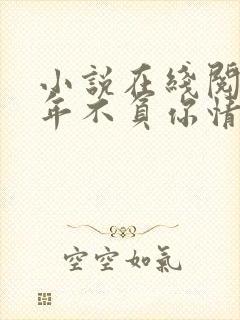 小說在綫閱
年不負你情
空空如氣